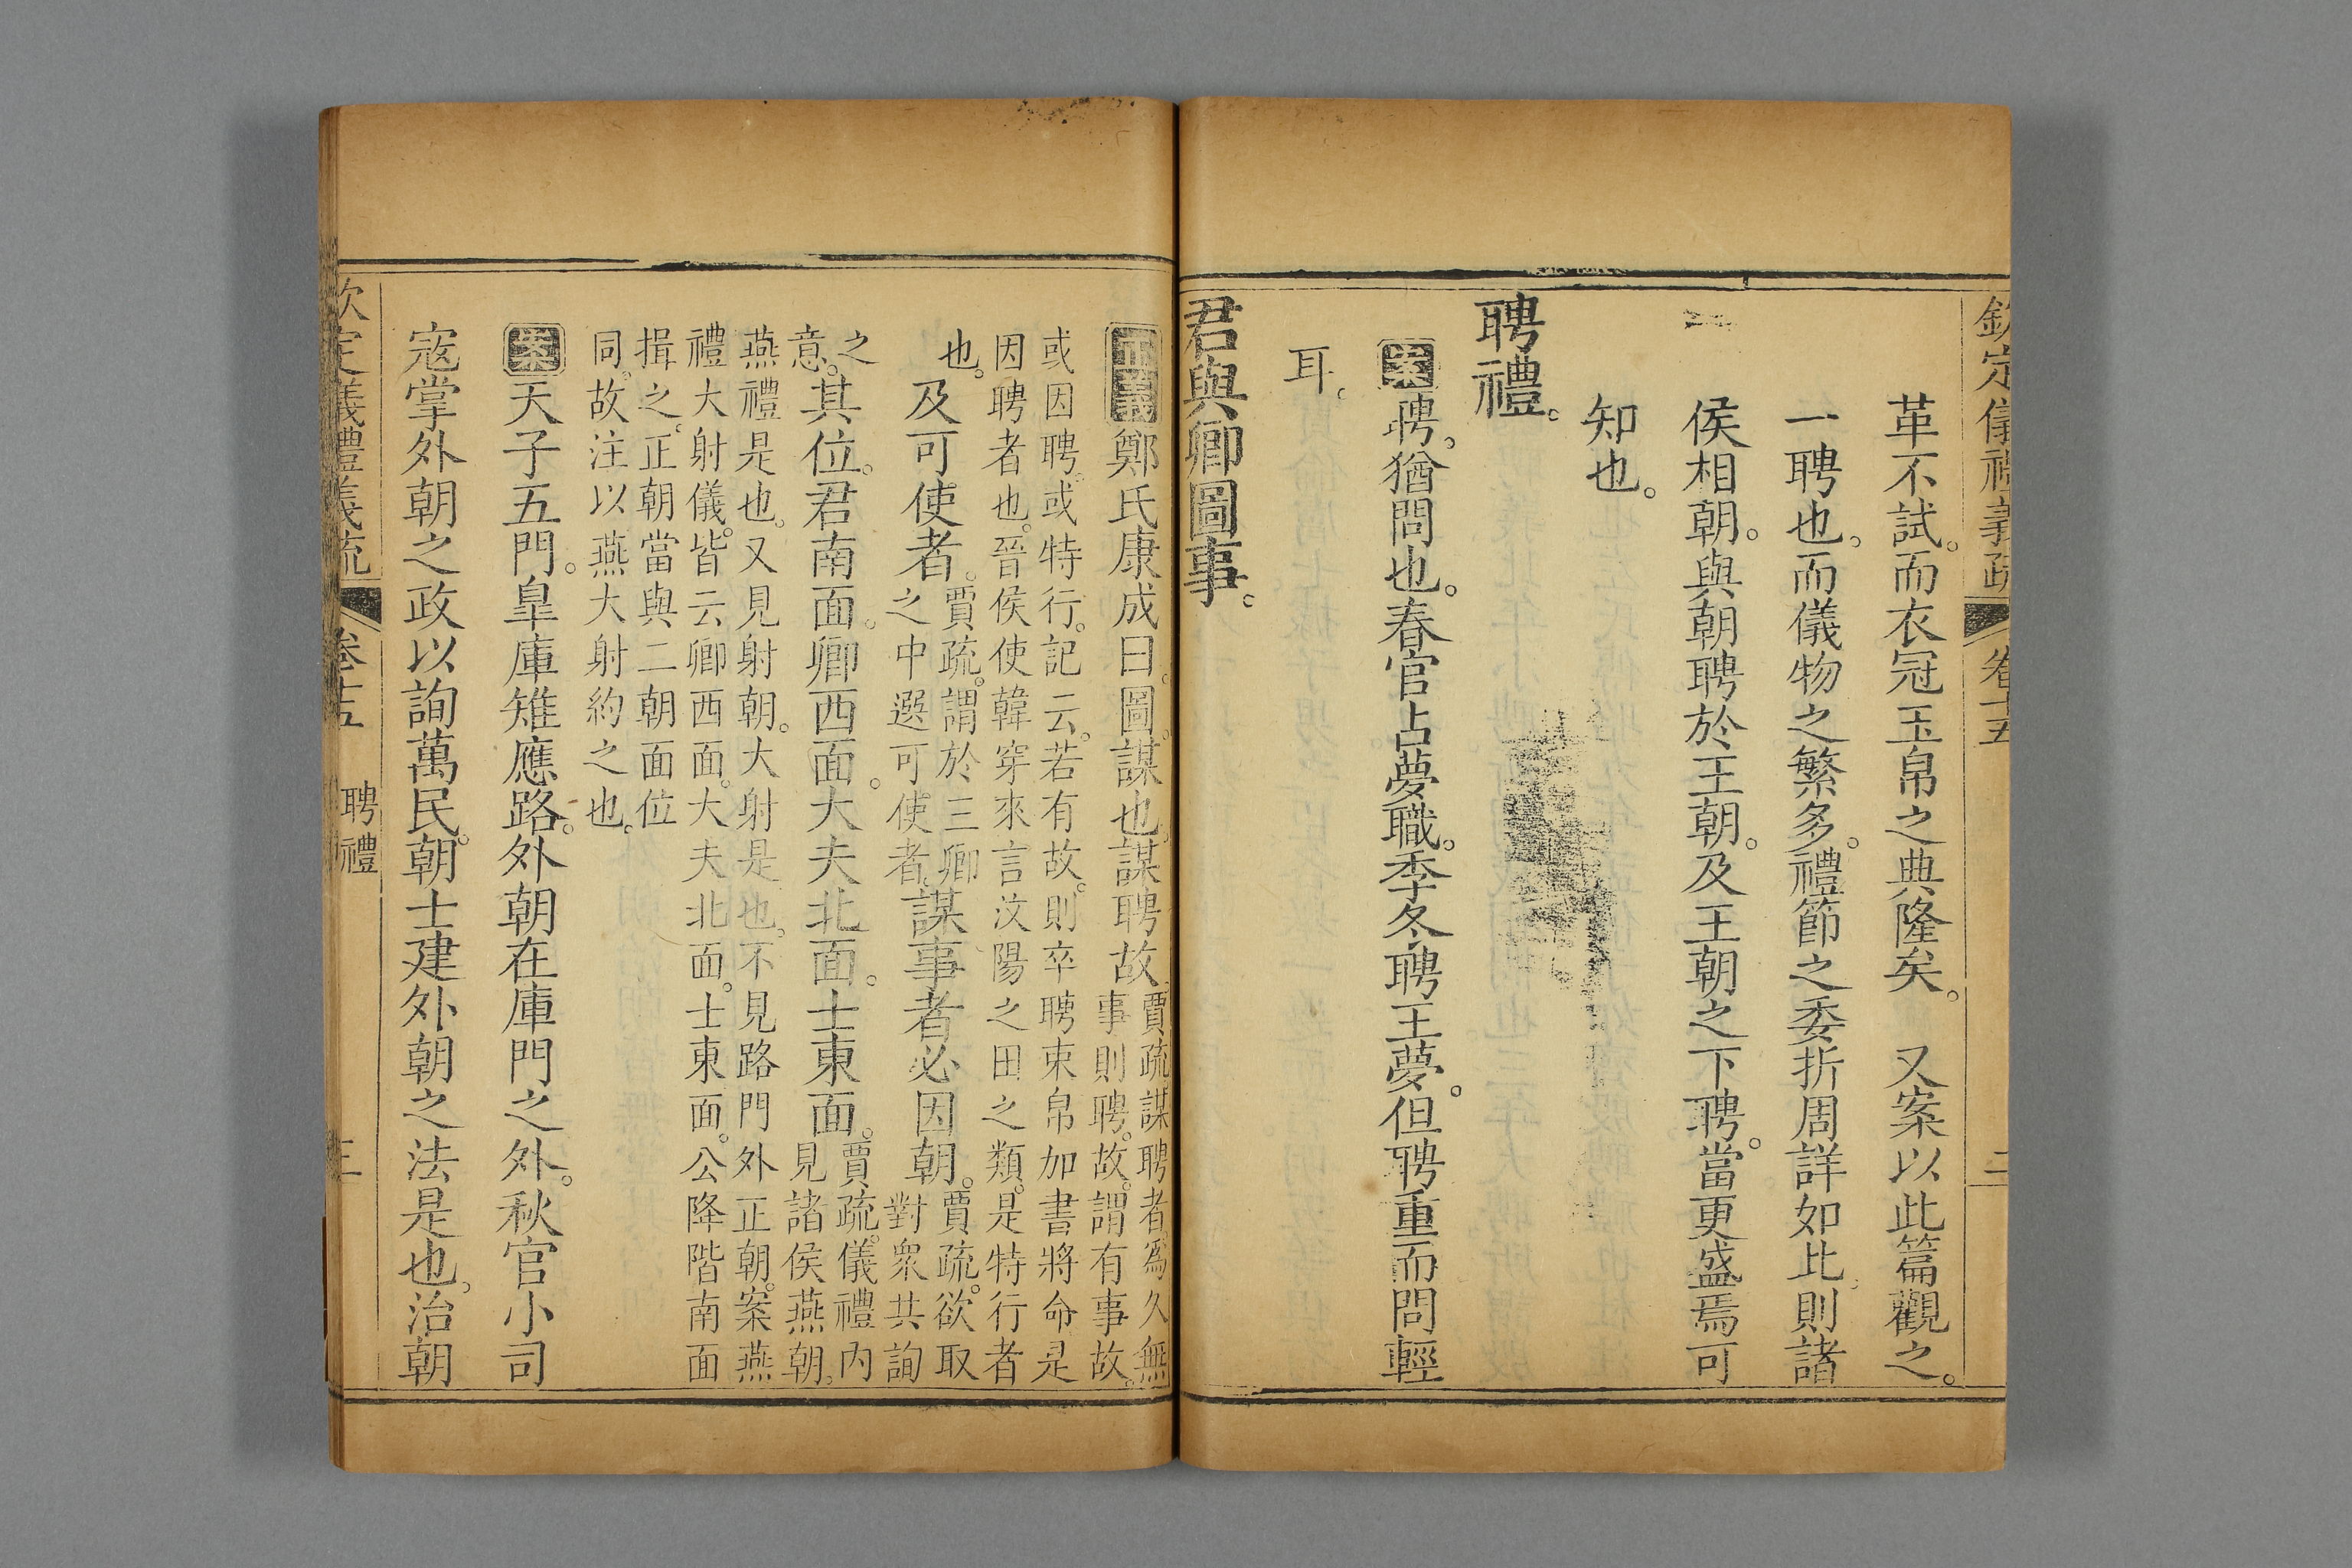 欽定儀禮義疏 卷十五 二
革不試。而衣冠玉帛之典隆矣。 又案以此篇觀之。
一聘也。而儀物之繁多。禮節之委折周詳如此。則諸
侯相朝。與朝聘於王朝。及王朝之下聘。當更盛焉可
知也。
聘禮。
案聘。猶問也。春官占夢職。季冬聘王夢。但聘重而問輕
耳。
君與卿圖事。
正義鄭氏康成曰。圖。謀也。謀聘故。
賈疏謀聘者。爲久無
事則聘。故。謂有事故。
或因聘。或特行。記云。若有故。則卒聘束帛加書將命是
因聘者也。晉侯使韓穿來言汶陽之田之類。是特行者
也。
及可使者。
賈疏。謂於三卿
之中選可使者。
謀事者必因朝。
賈疏。欲取
對衆共詢
之
意。
其位。君南面。卿西面。大夫北面。士東面。
賈疏。儀禮內
見諸侯燕朝。
燕禮是也。又見射朝。大射是也。不見路門外正朝。案燕
禮大射儀。皆云卿西面。大夫北面。士東面。公降階南面
揖之。正朝當與二朝面位
同。故注以燕大射約之也。
案天子五門。皐庫雉應路。外朝在庫門之外。秋官小司
寇掌外朝之政以詢萬民。朝士建外朝之法是也。治朝
欽定儀禮義疏 卷十五 聘禮 三